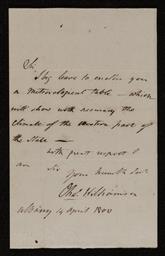 Sir
I beg leave to enclose you
a meteorological table – which
will show with accuracy the
climate of the western part of
the State –
with great respect I
am Sir
your humble Servt
Chs. Wilkinson
Albany 4 April 1800